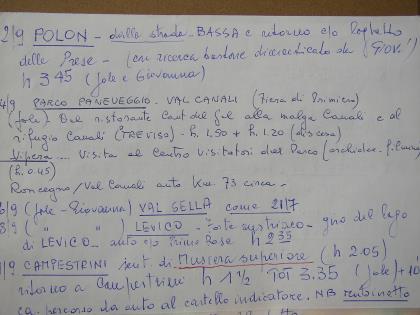 2/9 POLON - dalla strada BASSA e ritorno c/o Laghetto
delle Prese - (con ricerca bastone dimenticato da GIOV.)
h 3.45 (Jole e Giovanna)
4/9 PARCO PANEVEGGIO - VAL CANALI (Fiera di Primiero)
(Jole) Dal ristorante Cant del Gal alla malga Canali e al
rifugio Canali (TREVISO) - h. 1.50 + h 1.20 (discesa)
Vipera .... Visita al Centro Visitatori del Parco (orchidee
(h. 0.45)
Roncegno / Val Canali auto Km. 73 circa -
6/9 (Jole - Giovanna) VAL SELLA come 21/7
8/9 ( " " ) LEVICO - giro del lago
di LEVICO - auto c/o Prime Rose h 2.35
/9 CAMPESTRINI sent. di Musiera superiore (h 2.05)
ritorno a Campestrini h 1 ½ TOT 3.35 (Jole) + 10'
percorso da auto al castello indicatore. NB rubinetto